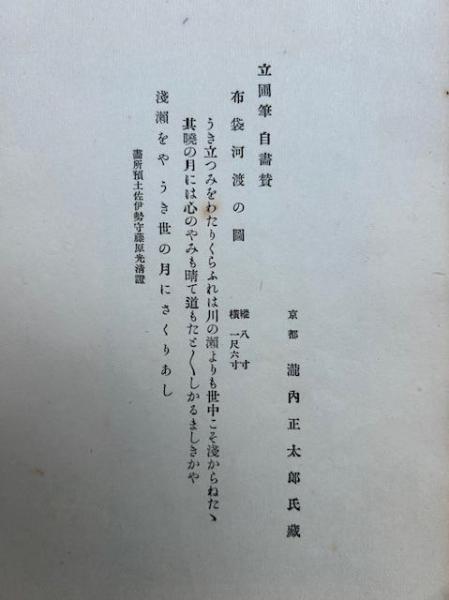 立圃筆 自畵賛
京都 瀧內正太郎氏藏
布袋河渡の圖
縱八寸
橫一尺六寸
うき立つみをわたりくらふれは川の瀨よりも世中こそ淺からねたゝ
其曉の月には心のやみも晴て道もたと〱しかるましきかや
淺瀨をや うき世の月にさくりあし
畵所預土佐伊勢守藤原光淸證